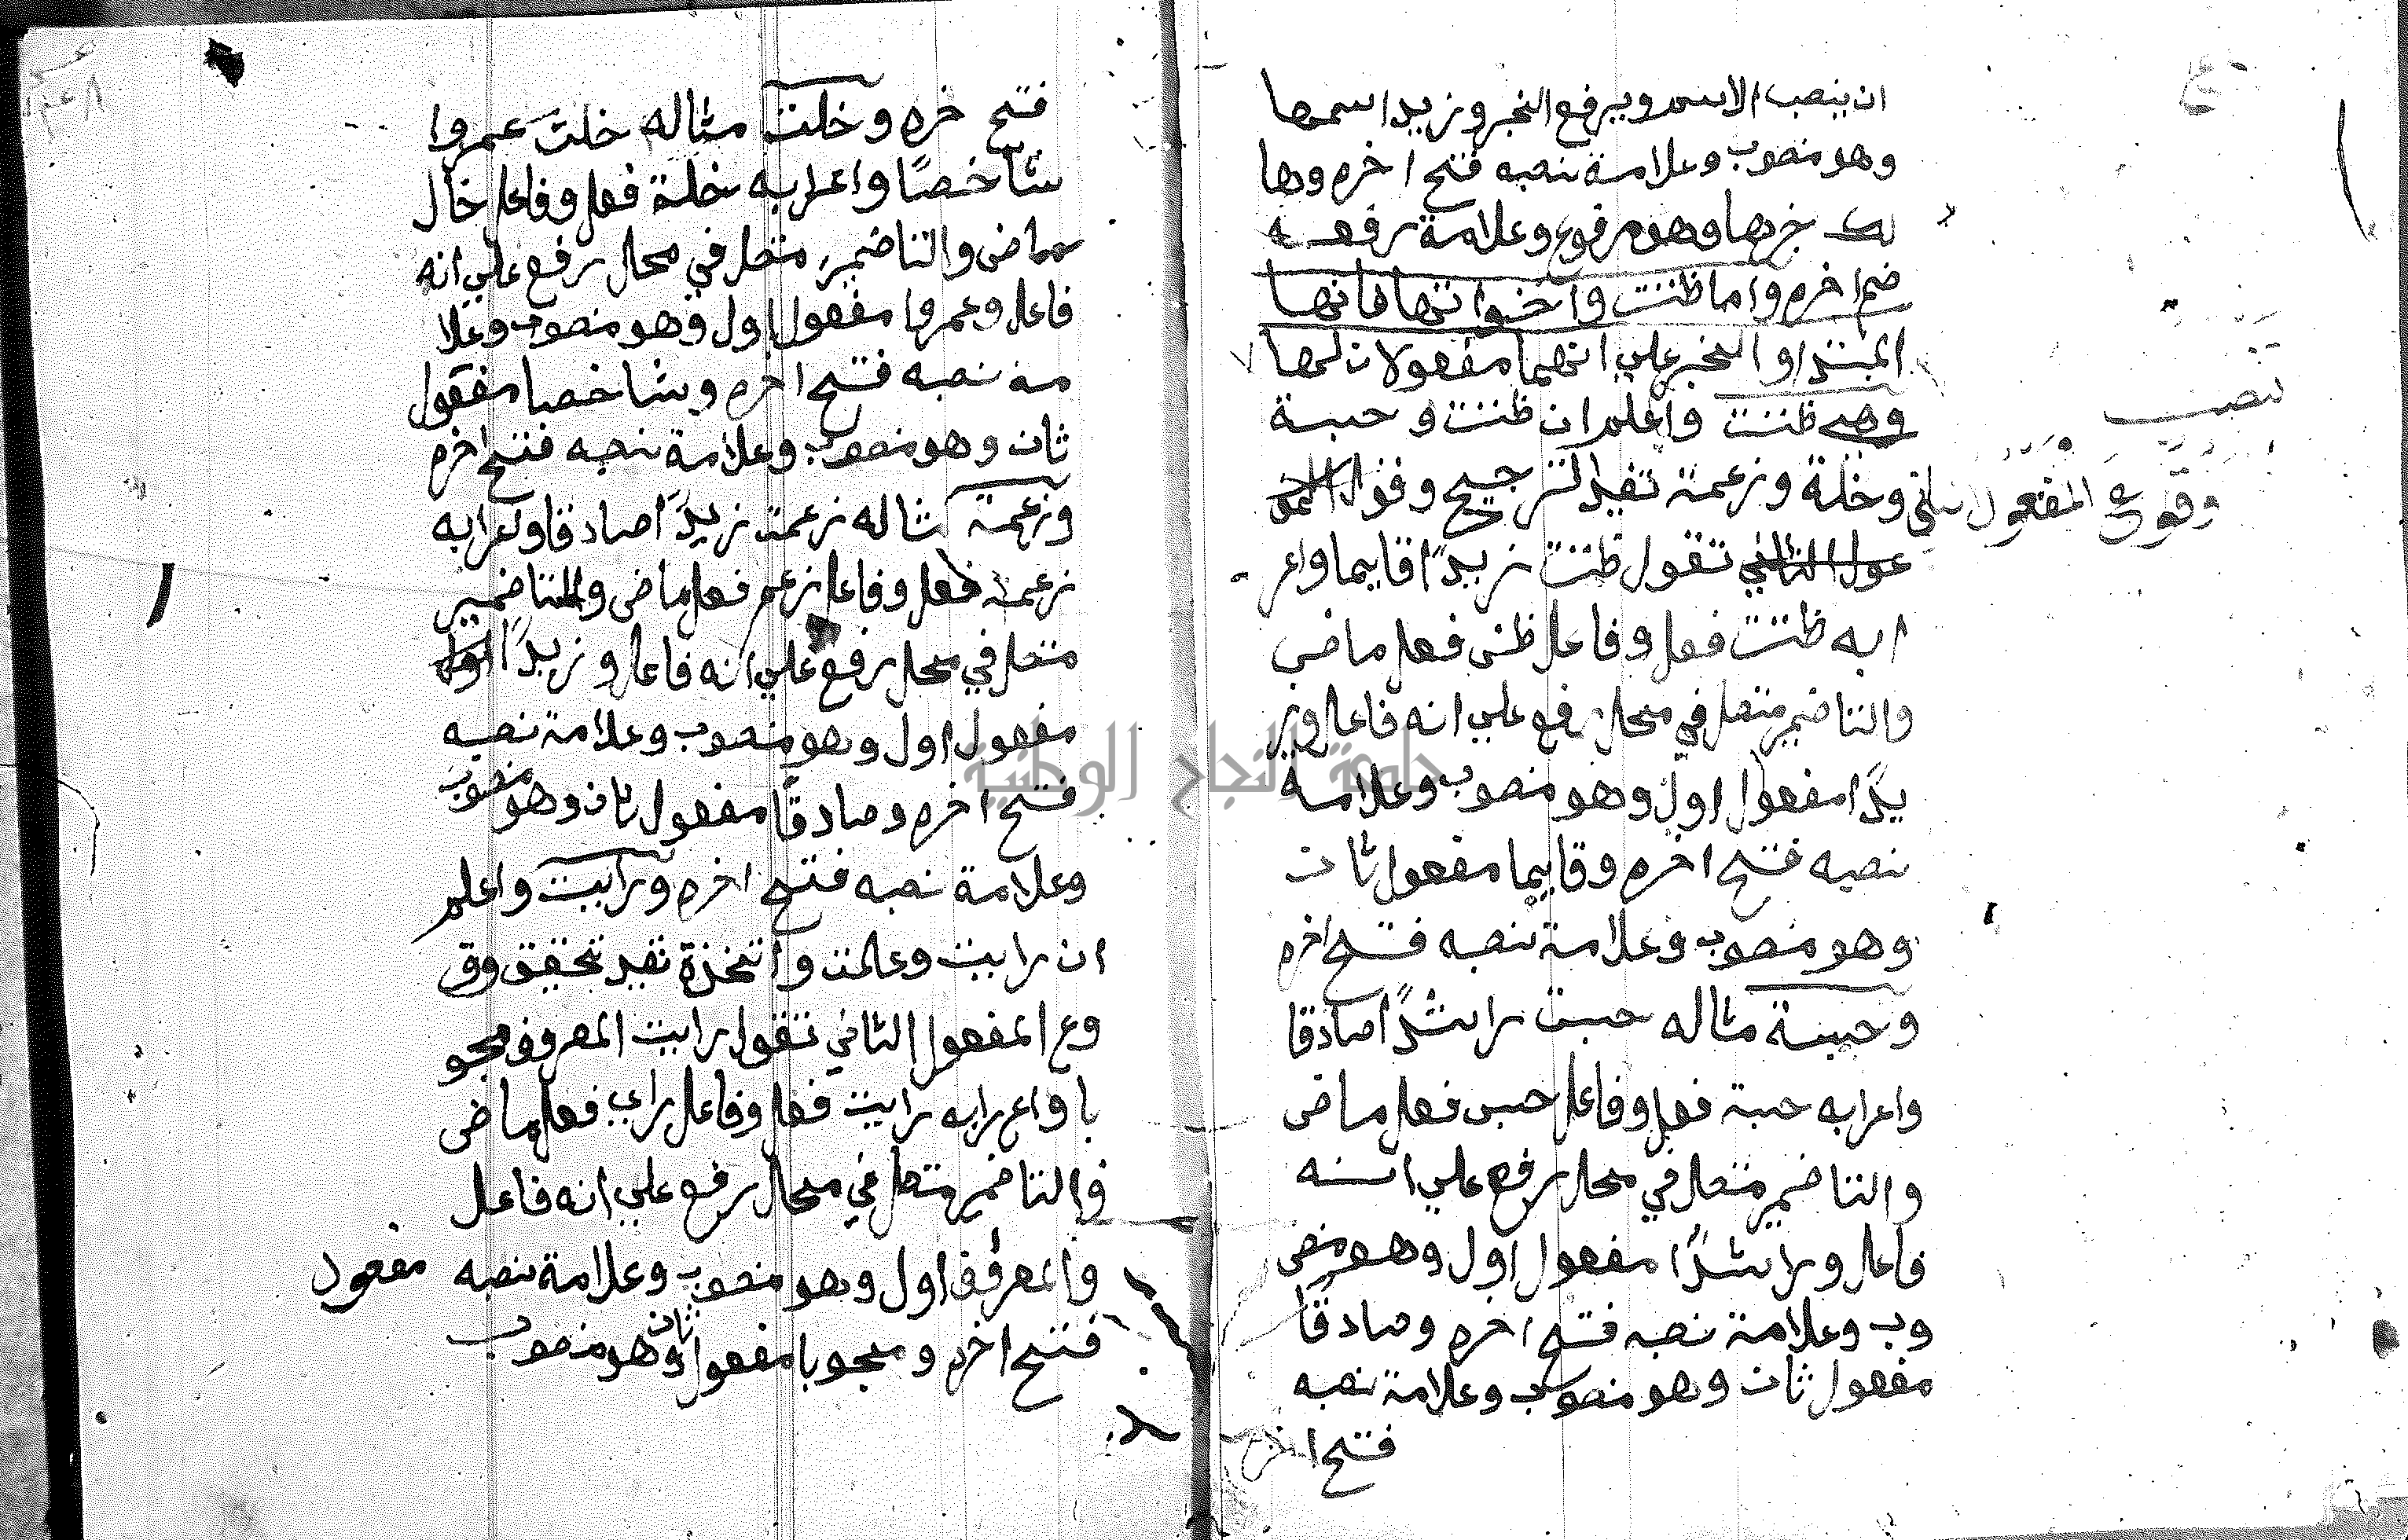 ان ينصب الاسم ويرفع الخبر وزيدا سمها
وهو منصوب وعلامة نصبه فتح اخره وها
لك خبرها وهو مرفوع وعلامة رفعه
ضم اخره واما ظننت واخواتها فانها
تنصب
المبتدا والخبر علي انهما مفعولان لها
وهي ظننت واعلم ان ظننت وحسبة
وخلة وزعمة تفيد لترجيح وقوع المفعول ثاني
عول الثاني تقول ظننت زيدًا قايما واعر
ابه ظننت فعل وفاعل ظن فعل ماضى
والتا ضمير متصل في محل رفع علي انه فاعل وز
يدًا مفعول اول وهو منصوب وعلامة
نصبه فتح اخره وقايما مفعول ثان
وهو منصوب وعلامة نصبه فتح اخره
وحسبة مثاله حسبت راشدًا صادقا
واعرابه حسبة فعل وفاعل حسب فعل ماضى
والتا ضمير متصل في محل رفع علي انه
فاعل وراشدًا مفعول اول وهو منصو
وب وعلامة نصبه فتح اخره وصادقًا
مفعول ثان وهو منصوب وعلامة نصبه
فتح اخره
فتح خره وخلت مثاله خلت عمروا
شاخصًا واعرابه خلة فعل وفاعل خال
ماضى والتا ضمير متصل في محل رفع علي انه
فاعل وعمروا مفعول اول وهو منصوب وعلا
مة نصبه فتح اخره وشاخصا مفعول
ثان وهو منصوب وعلامة نصبه فتح اخره
وزعمة مثاله زعمت زيدًا صادقا واعرابه
زعمة فعل وفاعل زعم فعل ماضى والتا ضمير
متصل في محل رفع علي انه فاعل وزيدًا اول
مفعول اول وهو منصوب وعلامة نصبه
فتح اخره وصادقًا مفعول ثان وهو منصوب
وعلامة نصبه فتح اخره ورايت واعلم
ان رايت وعلمت واتخذة تفيد تحقيق وق
وع المفعول الثاني تقول رايت المعروف محبو
با واعرابه رايت فعل وفاعل راي فعل ماضى
والتا ضمير متصل في محل رفع علي انه فاعل
والمعروف اول وهو منصوب وعلامة نصبه مفعول
فتح اخره ومحبوبا مفعول ثان وهو منصوب
جامعة النجاح الوطنية